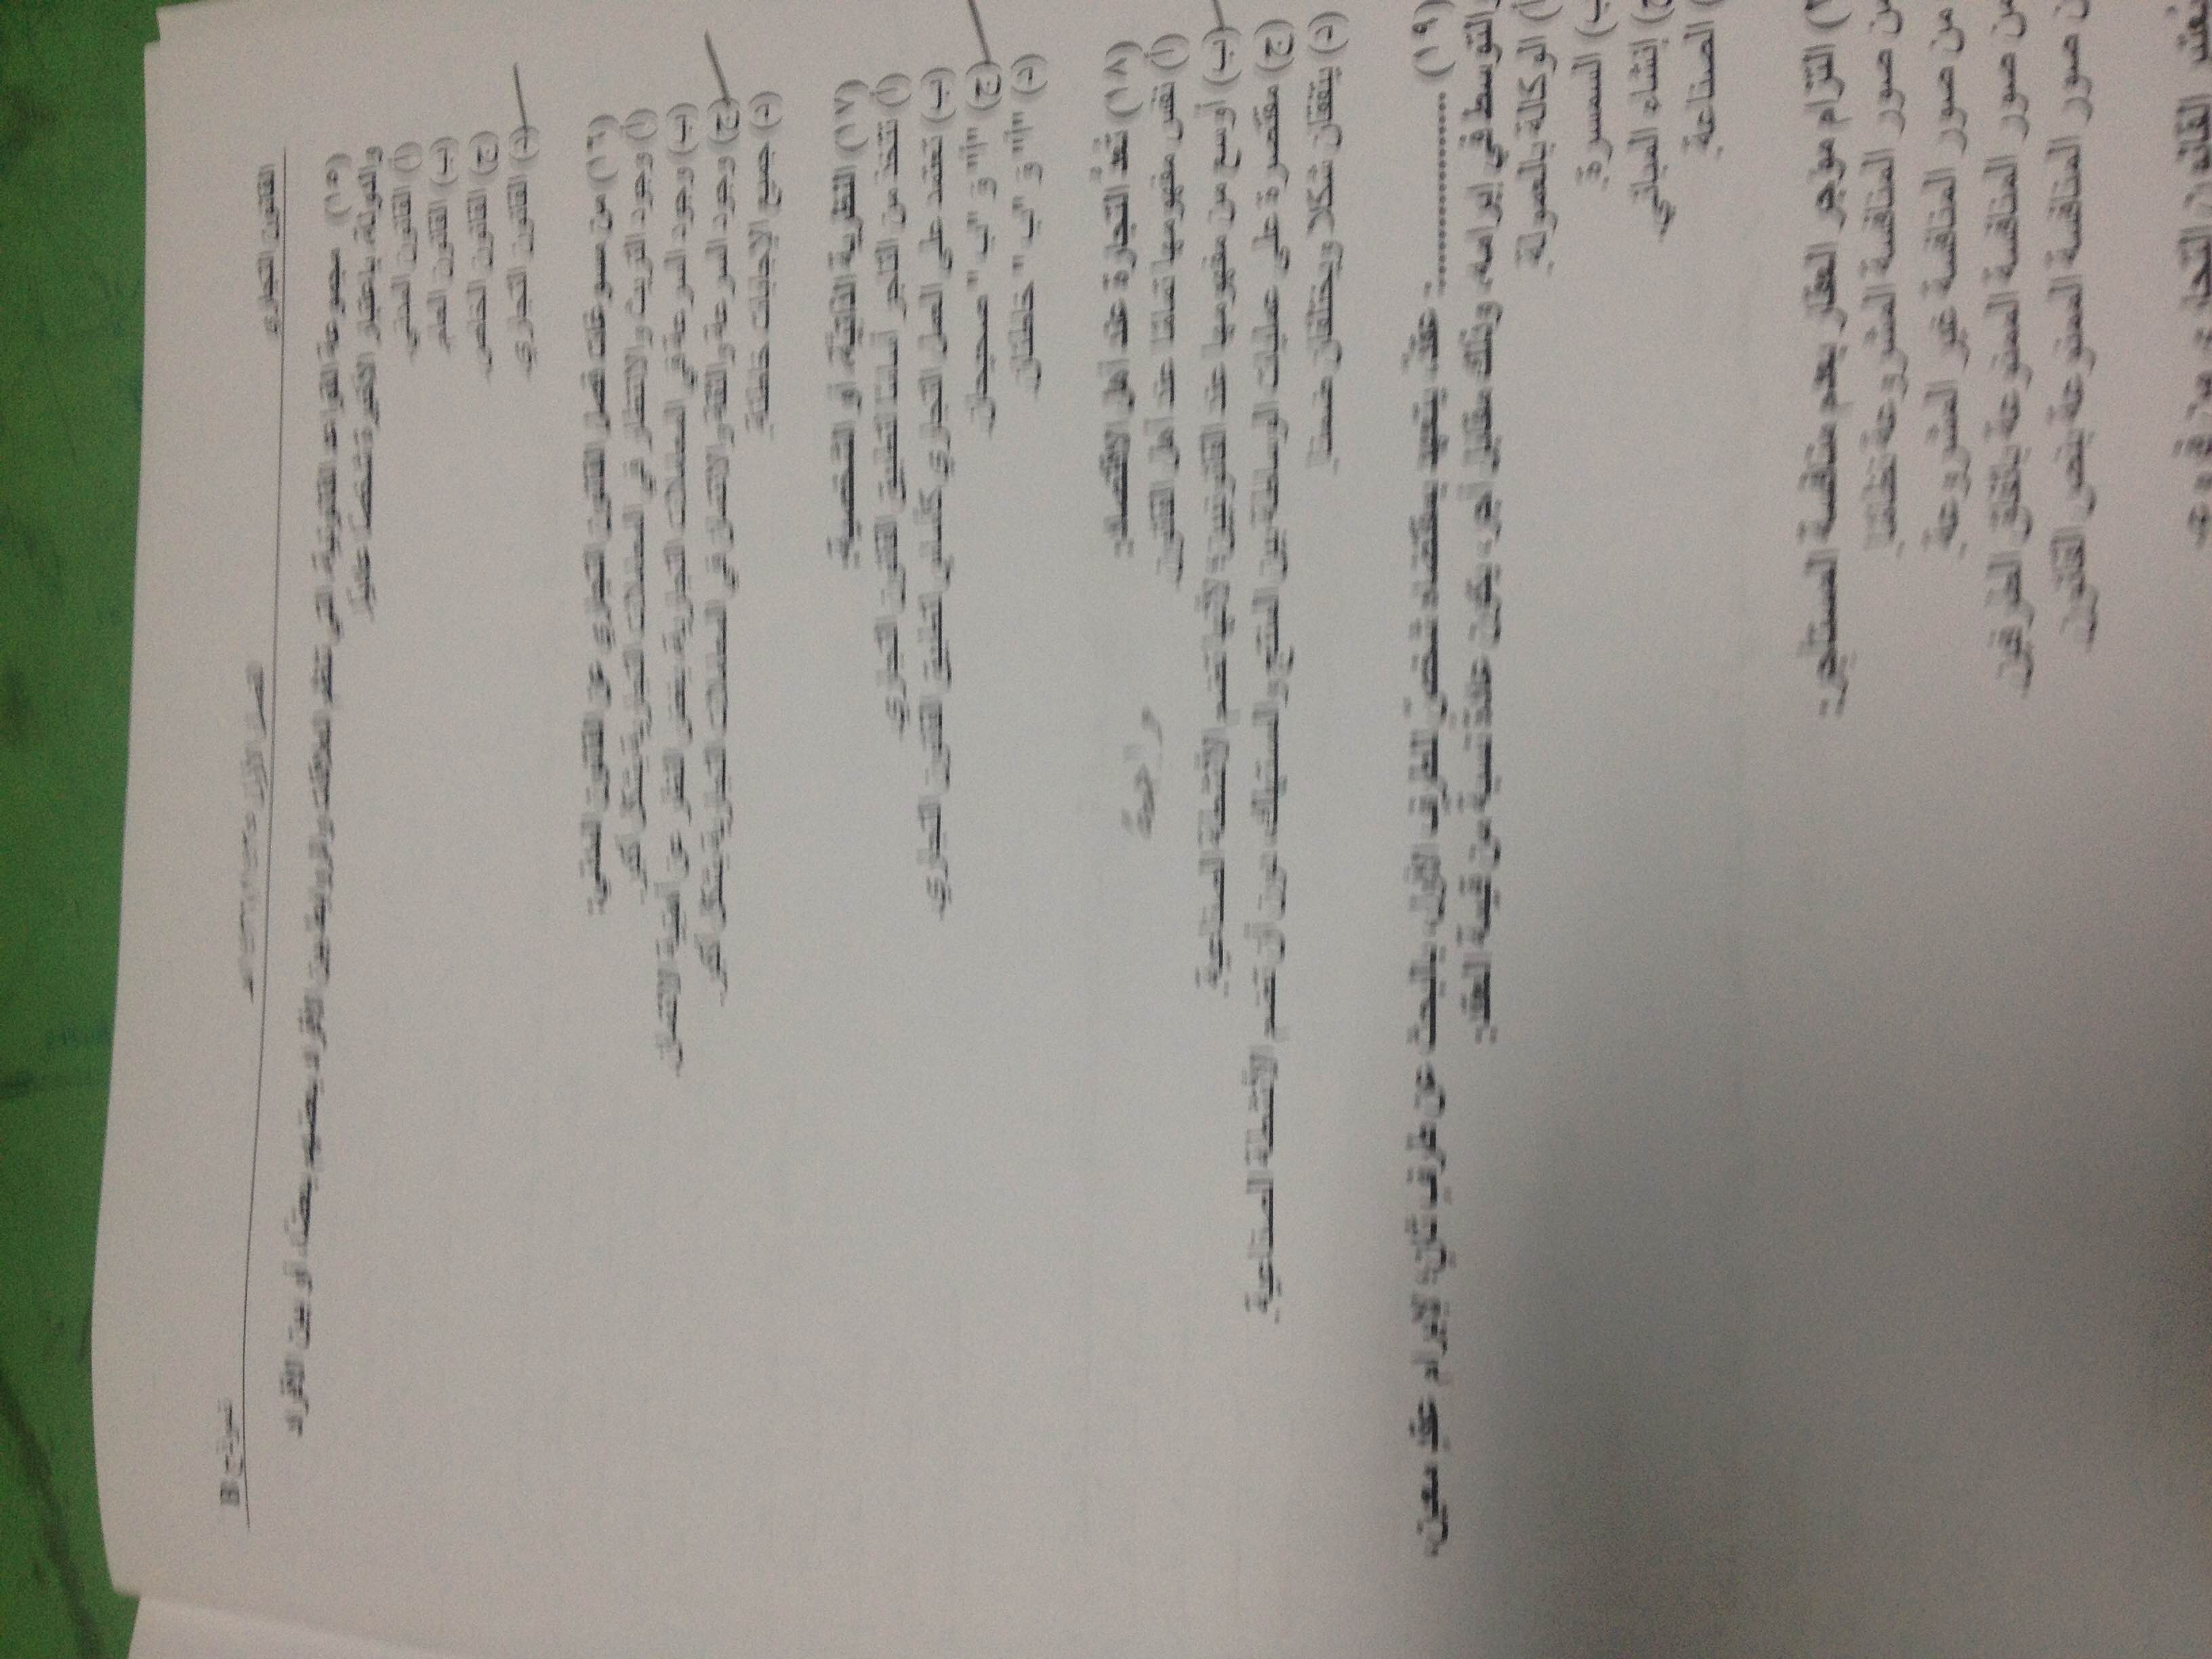 القانون التجاري نموذج B
(١٥) مجموعة القواعد القانونية التي تنظم العلاقات والروابط بين الأفراد بعضهم ببعض، أو بين الأفراد
والدولة باعتبار الأخيرة شخصًا عاديًا:
(أ) القانون المدني
(ب) القانون العام
(ج) القانون الخاص
(د) القانون التجاري
(١٦) من مسوغات فصل القانون التجاري عن القانون المدني:
(أ) وجود التريث والانتظار في المعاملات التجارية بشكل أكبر
(ب) وجود السرعة في المعاملات التجارية بغض النظر عن أهمية الائتمان
(ج) وجود السرعة والثقة والائتمان في المعاملات التجارية بشكل أكبر
(د) جميع الإجابات خاطئة
(١٧) النظرية الذاتية أو الشخصية:
(أ) تتخذ من التاجر أساسًا لتطبيق القانون التجاري
(ب) تعتمد على العمل التجاري كأساس لتطبيق القانون التجاري
(ج) "أ" و "ب" صحيحان
(د) "أ" و "ب" خاطئان
(١٨) تعدُّ التجارة عند أهل الاقتصاد:
(أ) نفس مفهومها تمامًا عند أهل القانون
(ب) أوسع من مفهومها عند القانونيين؛ لأنها تضم الأنشطة الصناعية
(ج) مقصورة على عمليات الوساطة بين المنتج والمستهلك دون أن تضم الأنشطة الصناعية
(د) يتفقان شكلا ويختلفان ضمنا
(١٩) .................. : عقدٌ يتعهد بمقتضاه شخصٌ لطرف الأول، بالبحث عن طرفٍ ثانٍ؛ لإبرام عقدٍ معين،
التوسط في إبرامه، وذلك مقابل أجر، يكون عادةً نسبية من قيمة العقد:
أ) الوكالة بالعمولة
ب) السمسرة
ج) إنشاء المباني
الصناعة
) التزام مؤجر العقار بعدم منافسة المستأجر:
من صور المنافسة المشروعة نظامًا
من صور المنافسة غير المشروعة
من صور المنافسة الممنوعة باتفاق الطرفين
من صور المنافسة الممنوعة بنص القانون
القانون التجاري